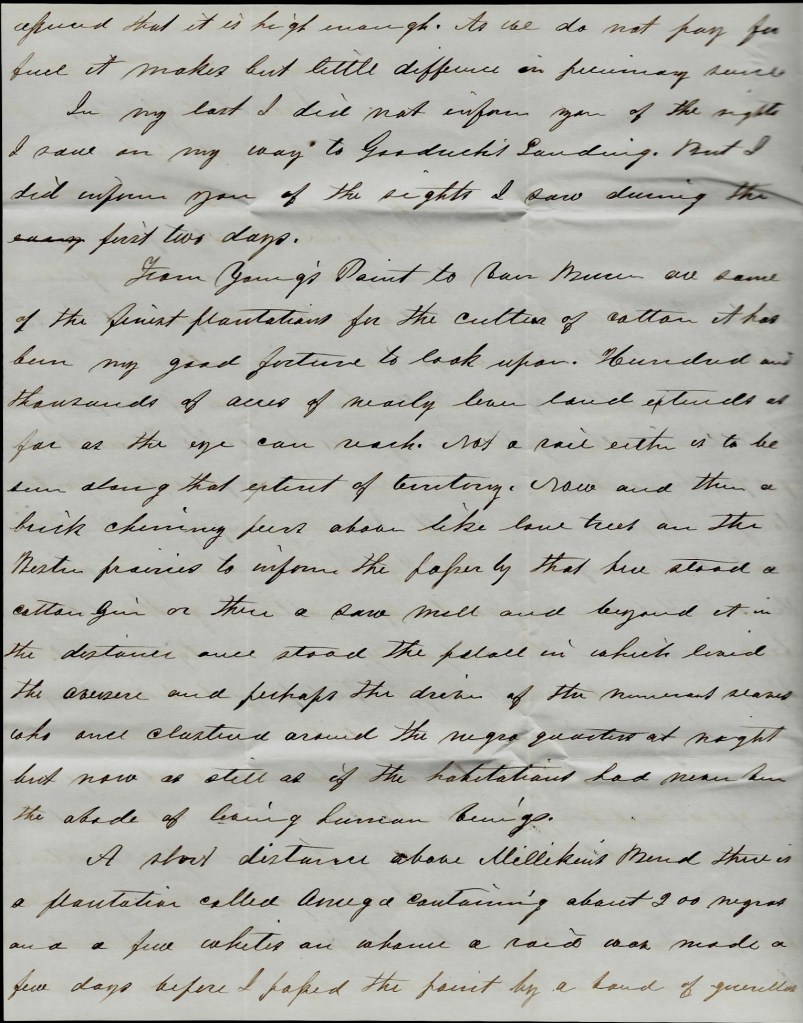 assured that it is high enough. As we do not pay for
fuel it makes but little difference in pecuniary sense
In my last I did not inform you of the sights
I saw on my way to Goodrich's Landing. But I
did inform you of the sights I saw during the
first two days.
From Young's Point to are some
of the finest plantations for the culture of cotton it has
been my good fortune to look upon. Hundred and
thousands of acres of nearly leven land extends as
far as the eye can reach. Not a rail either is to be
seen along that extent of territory. Now and then a
brick chimney peers above like lone trees on the
Western prairies to inform the passer by that here stood a
cotton Gin or there a saw mill and beyond it in
the distance once stood the in which lived
the and perhaps the driver of the numerous slaves
who once clustered around the negro quarters at night
but now as still as if the habitations had never been
the abode of living human beings.
A short distance above Milliken's Bend there is
a plantation called Omega containing about 200 negros
and a few whites on whome a raid was made a
few days before I passed the point by a band of guerillas